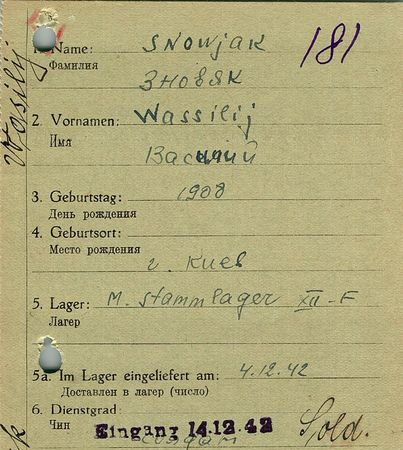 181
1. Name: Snowjak
Фамилия
Зновяк
2. Vornamen: Wassilij
Имя
Василий
3. Geburtstag: 1908
День рождения
4. Geburtsort:
Место рождения
г. Киев
5. Lager: M. Stammlager XII-F
Лагер
5a. Im Lager eingeliefert am: 4.12.42
Доставлен в лагер (число)
6. Dienstgrad: Sold.
Чин
Eingang 14.12.42
солдат
Wasilij